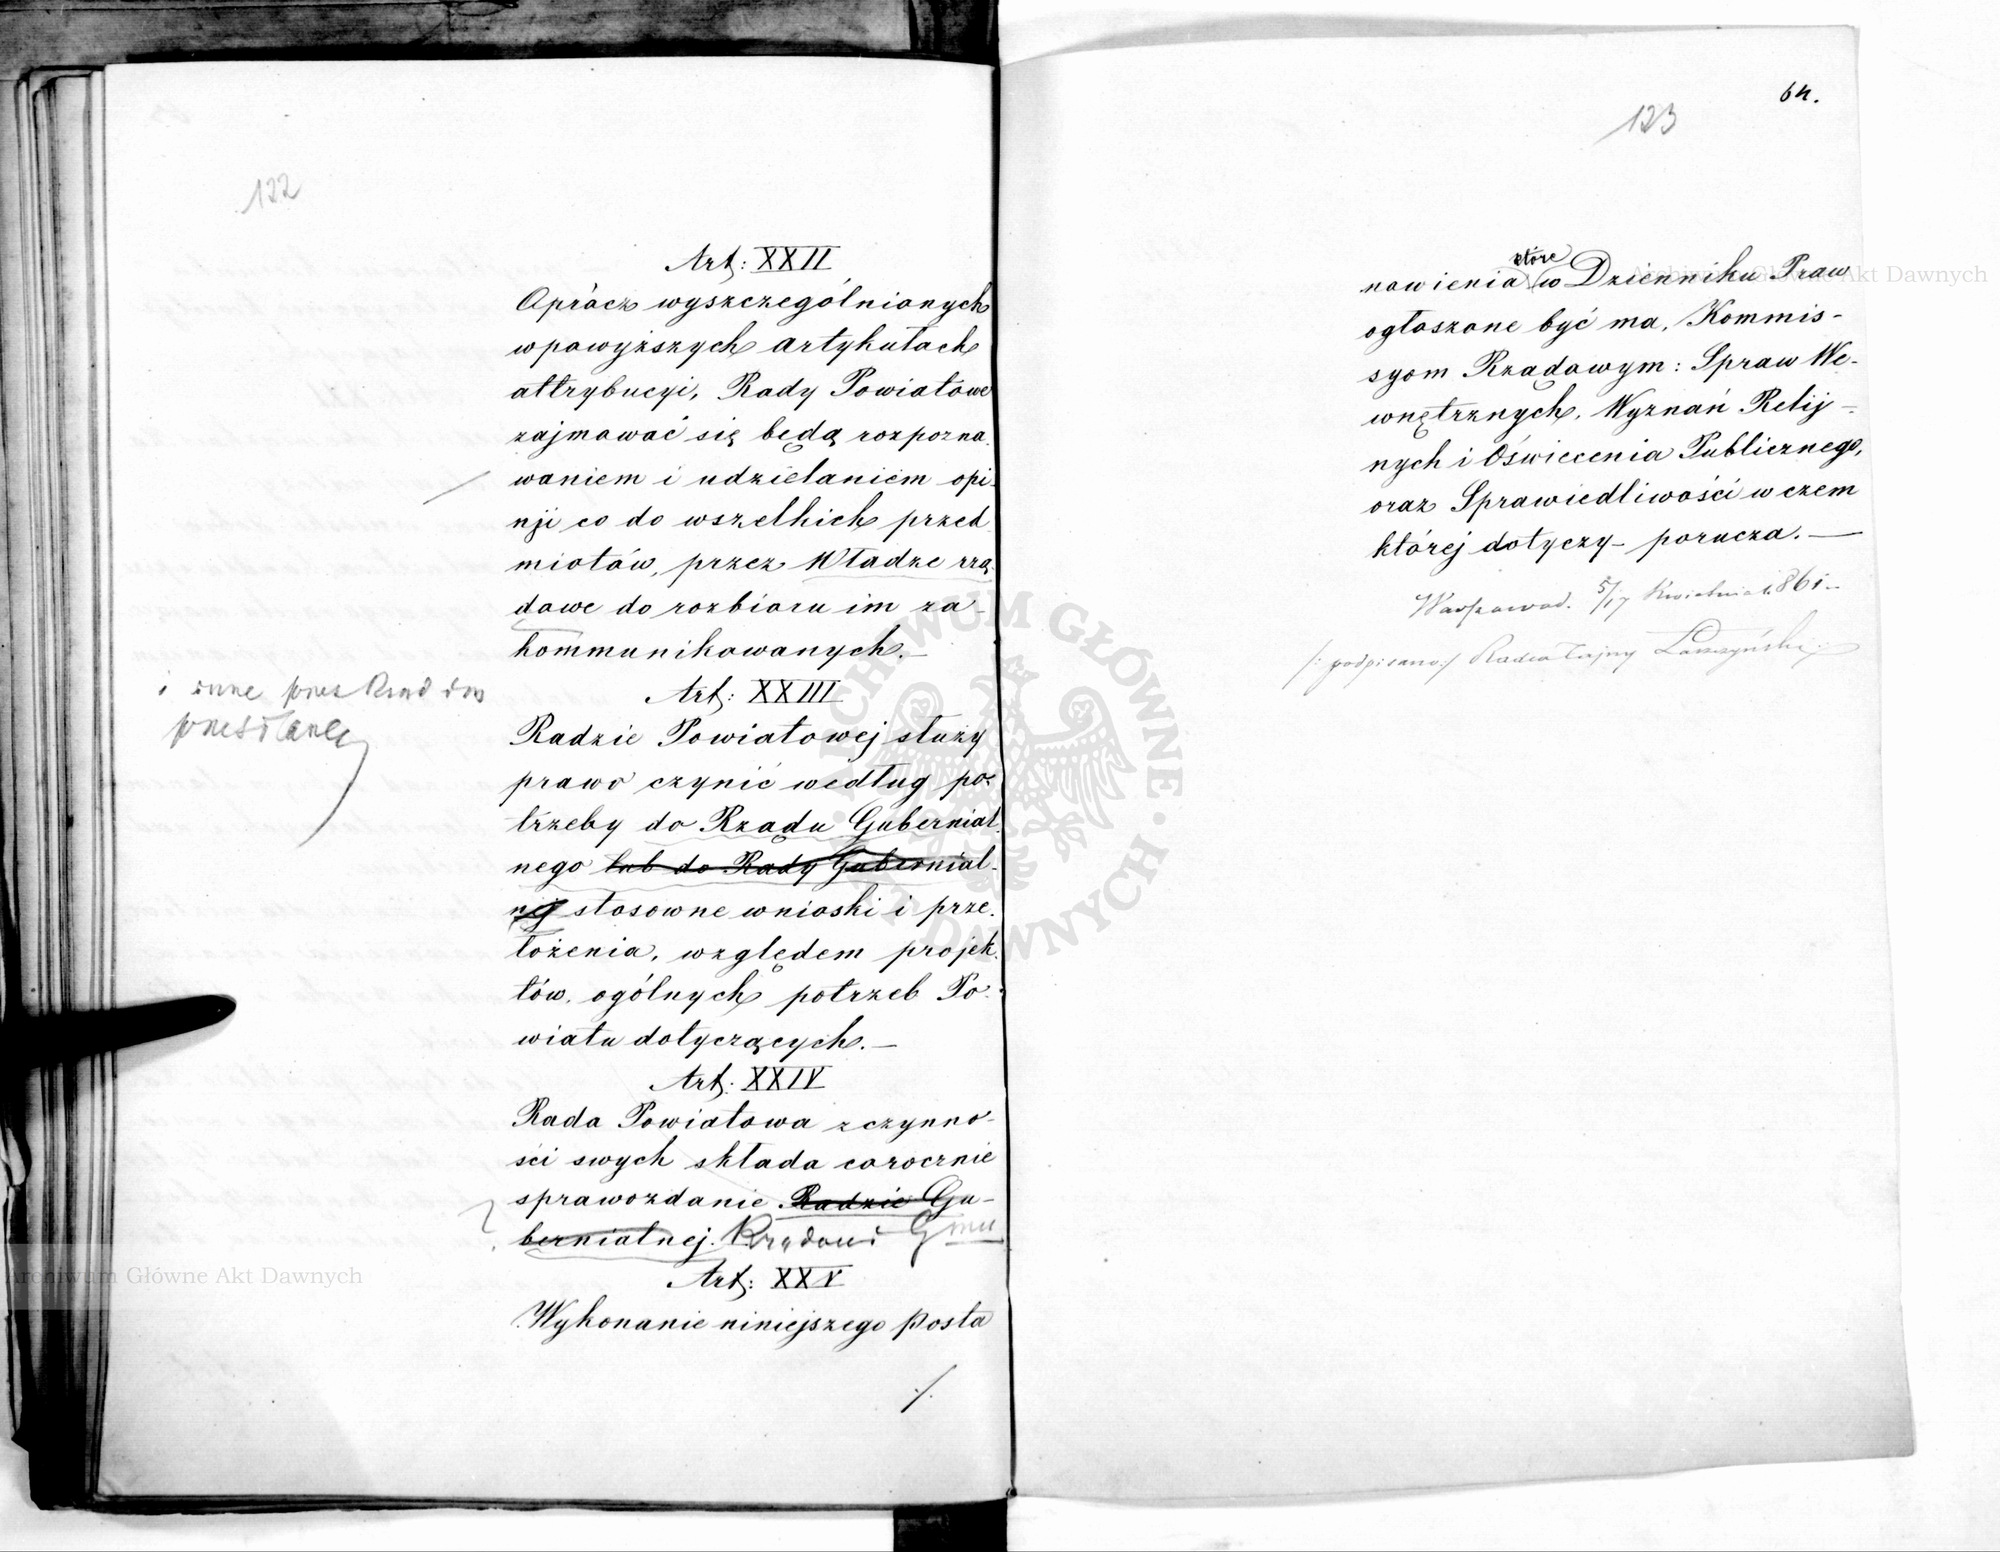 122
Art: XXII
Oprócz wyszczególnionych
w powyższych artykułach
attrybucyi, Rady Powiatowe
zajmować się będą rozpozna
waniem i udzielaniem opi
nji co do wszelkich przed
miotów, przez Władze rzą
dowe do rozbioru im za-
kommunikowanych.—
i inne przez Rząd im
przesłane
Art: XXIII
Radzie Powiatowej służy
prawo czynić według po-
trzeby do Rządu Gubernial
nego lub do Rady Gubernial-
nej stosowne wnioski i prze
łożenia, względem projek
tów, ogólnych potrzeb Po-
wiatu dotyczących.—
Art: XXIV
Rada Powiatowa z czynno-
ści swych składa corocznie
sprawozdanie Radzie Gu-
bernialnej. Rządowi Gmu
Art: XXV
Wykonanie niniejszego posta
./.
64.
123
które
nowienia w Dzienniku Praw
ogłoszone być ma, Kommis-
syom Rządowym: Spraw We-
wnętrznych, Wyznań Relij-
nych i Oświecenia Publicznego,
oraz Sprawiedliwości w czem
której dotyczy- porucza.—
Warszawa d. 5/17 Kwietnia 1861-
/: podpisano:/ Radca Tajny Łaszczyński
Archiwum Główne Akt Dawnych
Archiwum Główne Akt Dawnych
ARCHIWUM GŁÓWNE AKT DAWNYCH